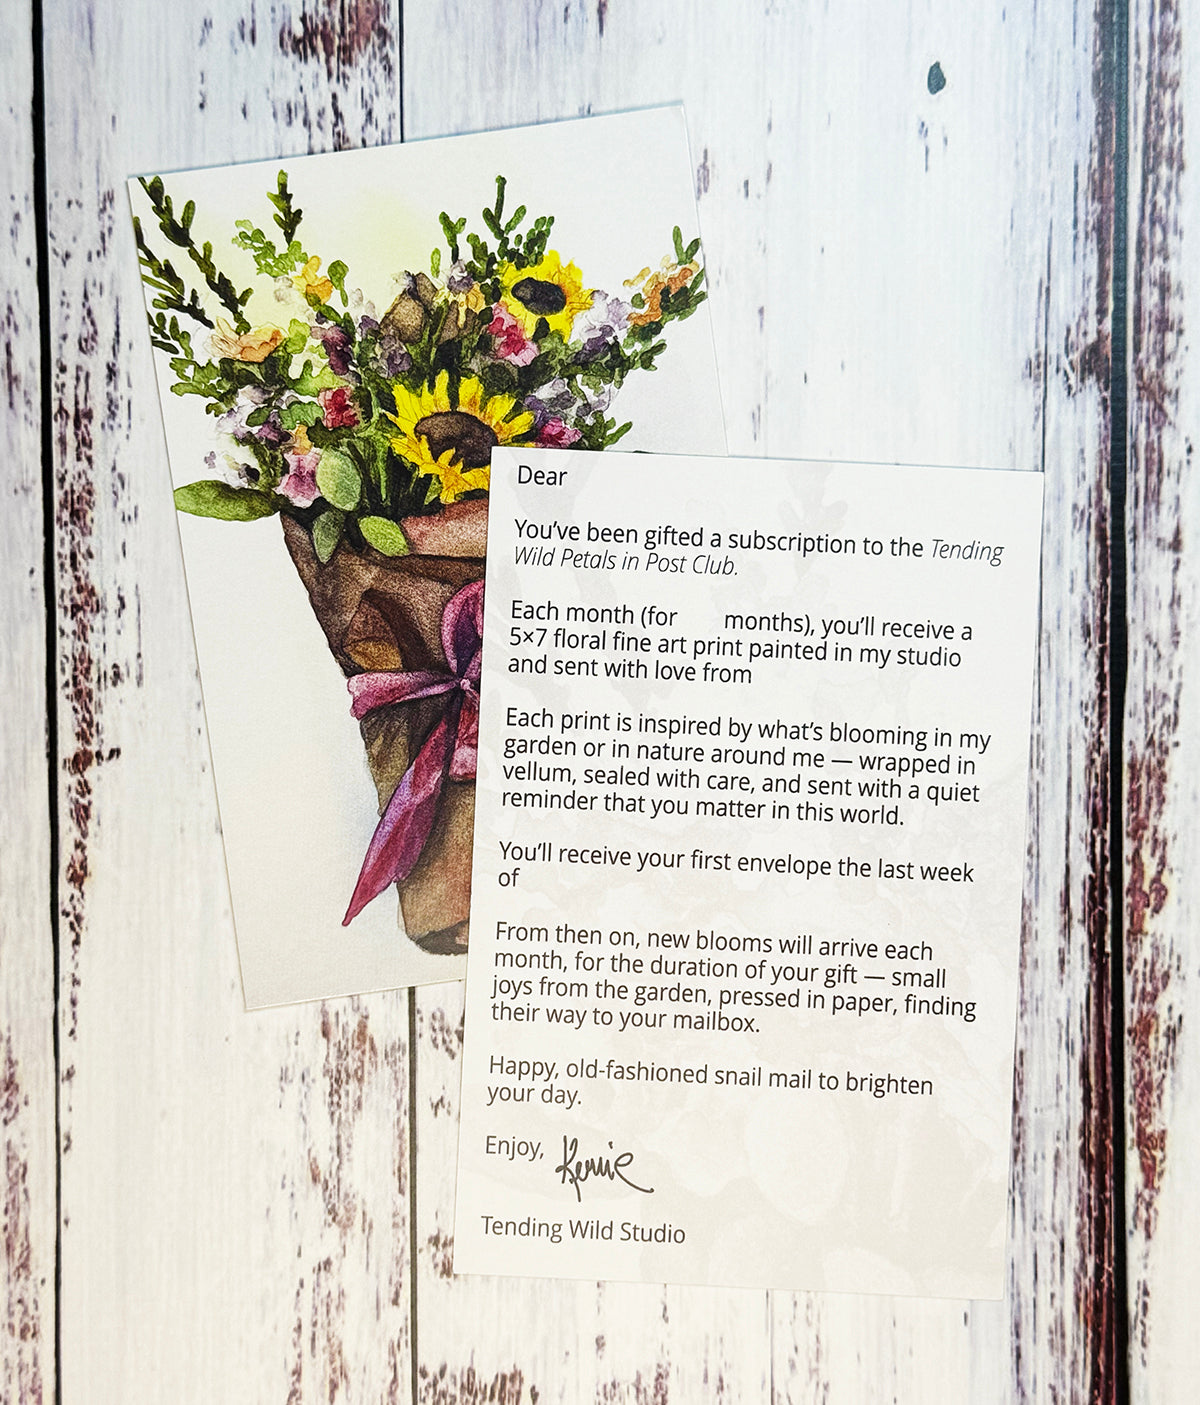 Dear
You’ve been gifted a subscription to the Tending
Wild Petals in Post Club.
Each month (for months), you’ll receive a
5×7 floral fine art print painted in my studio
and sent with love from
Each print is inspired by what’s blooming in my
garden or in nature around me — wrapped in
vellum, sealed with care, and sent with a quiet
reminder that you matter in this world.
You’ll receive your first envelope the last week
of
From then on, new blooms will arrive each
month, for the duration of your gift — small
joys from the garden, pressed in paper, finding
their way to your mailbox.
Happy, old-fashioned snail mail to brighten
your day.
Enjoy, Kerrie
Tending Wild Studio